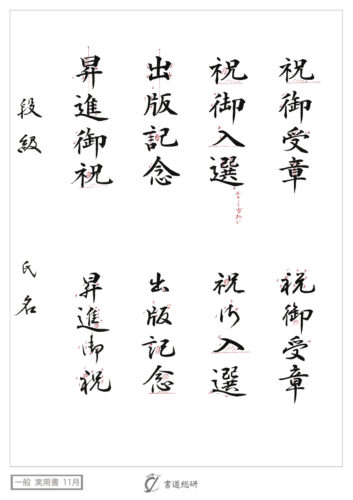 祝御受章
祝御入選
出版記念
昇進御祝
段級
祝御受章
祝御入選
出版記念
昇進御祝
氏名
一般 実用書 11月
書道総研